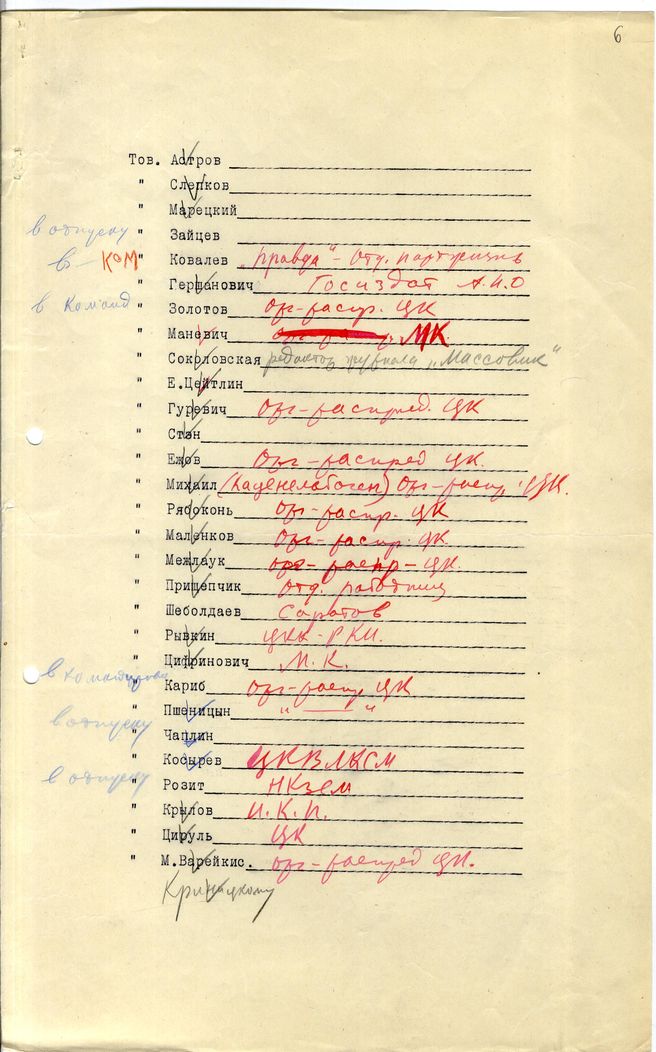 6
Тов. Астров
" Слепков
" Марецкий
в отпуску " Зайцев
в - ком " Ковалев "Правда" - отд. партжизнь
" Герцанович Госиздат А.И.О
в команд " Золотов орг-распр. ЦК
" Маневич МК
" Сокрловская редактор журнала "Массовик"
" Е.Цейтлин
" Гуревич орг-распред. ЦК
" Стэн
" Ежов орг-распред ЦК.
" Михаил (Каценеленбоген) орг-распр. ЦК.
" Рябоконь орг-распр. ЦК
" Маленков орг-распр. ЦК
" Межлаук орг-распр-ЦК.
" Прищепчик отд. работниц
" Шеболдаев Саратов
" Рывкин ЦКК-РКИ.
" Цифринович М.К.
в командировке " Кариб орг-распр ЦК
" Пшеницын " — "
в отпуску " Чаплин
" Косырев ЦКВЛКСМ
в отпуску " Розит НКзем
" Крылов И.К.П.
" Цируль ЦК
" М.Варейкис. орг-распред ЦК.
Криницкому